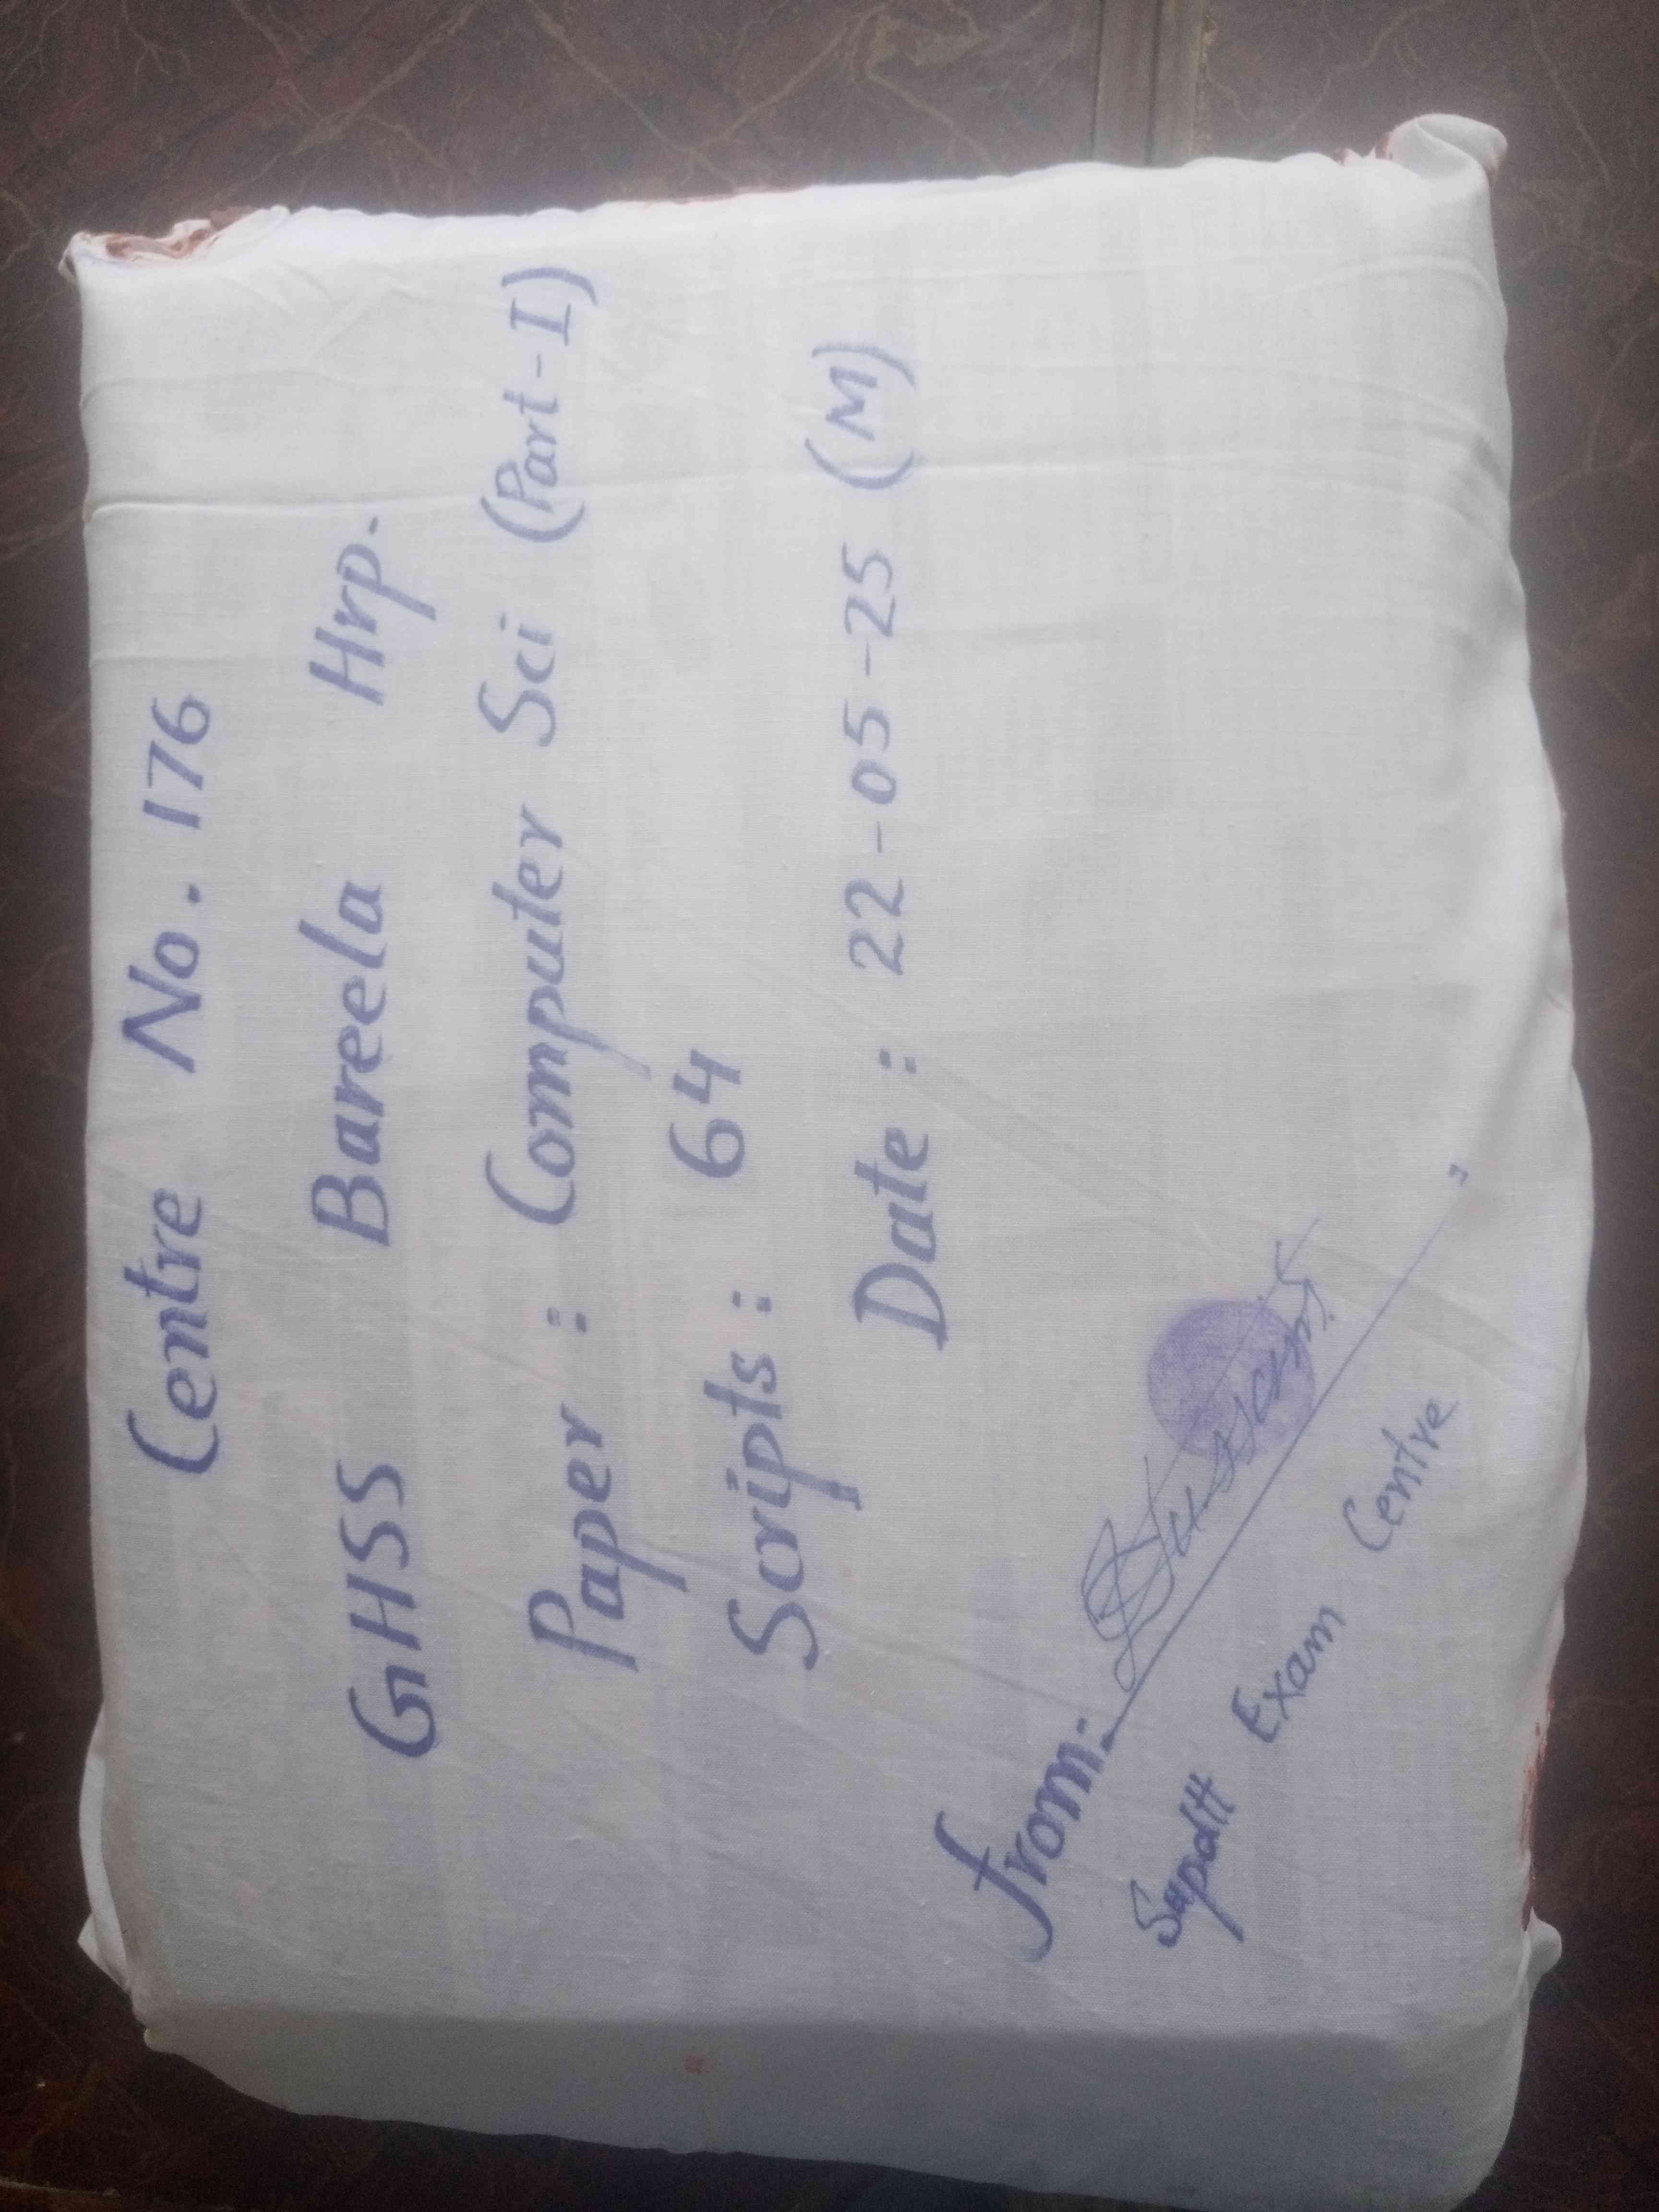 Centre No. 176
GHSS Bareela Hrp.
Paper : Computer Sci (Part-I)
Scripts : 64
Date : 22-05-25 (M)
from:-
Supdtt Exam Centre